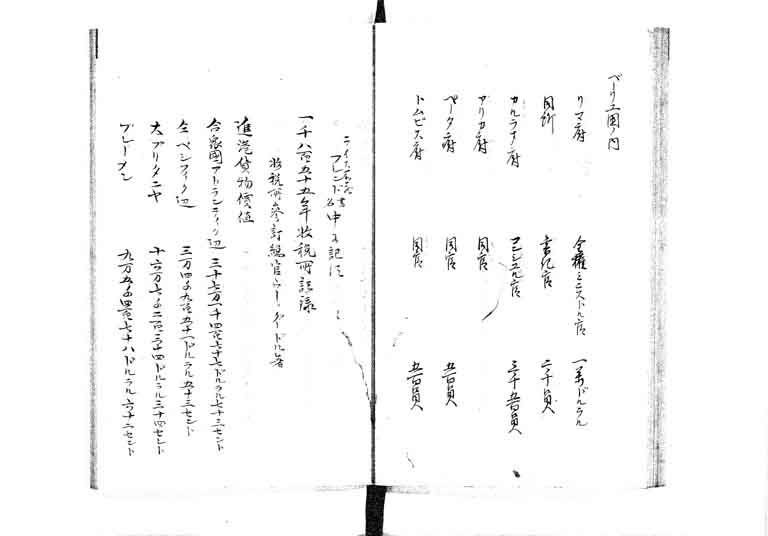 ペーリユ國ノ内
リマ府 全權ミニストル官 一萬ドルラル
同所 書記官 二千員
カルラヲ府 コンシユル官 三千五百員
アリカ府 同官
ペータ府 同官 五百員
トムビス府 同官 五百員
フレンド 中ニ記ス
一千八百五十五年收税所記録
收税所參訂總官 著
進港貨物價値
合衆國アトランティク辺 三十七万一千四百七十七ドルラル七十三セント
仝ペシフィク辺 三万四千九百五十一ドルラル五十三セント
大ブリタニヤ 十六万七千二百三十四ドルラル三十四セント
ブレーメン 九万五千四百七十八ドルラル六十二セント